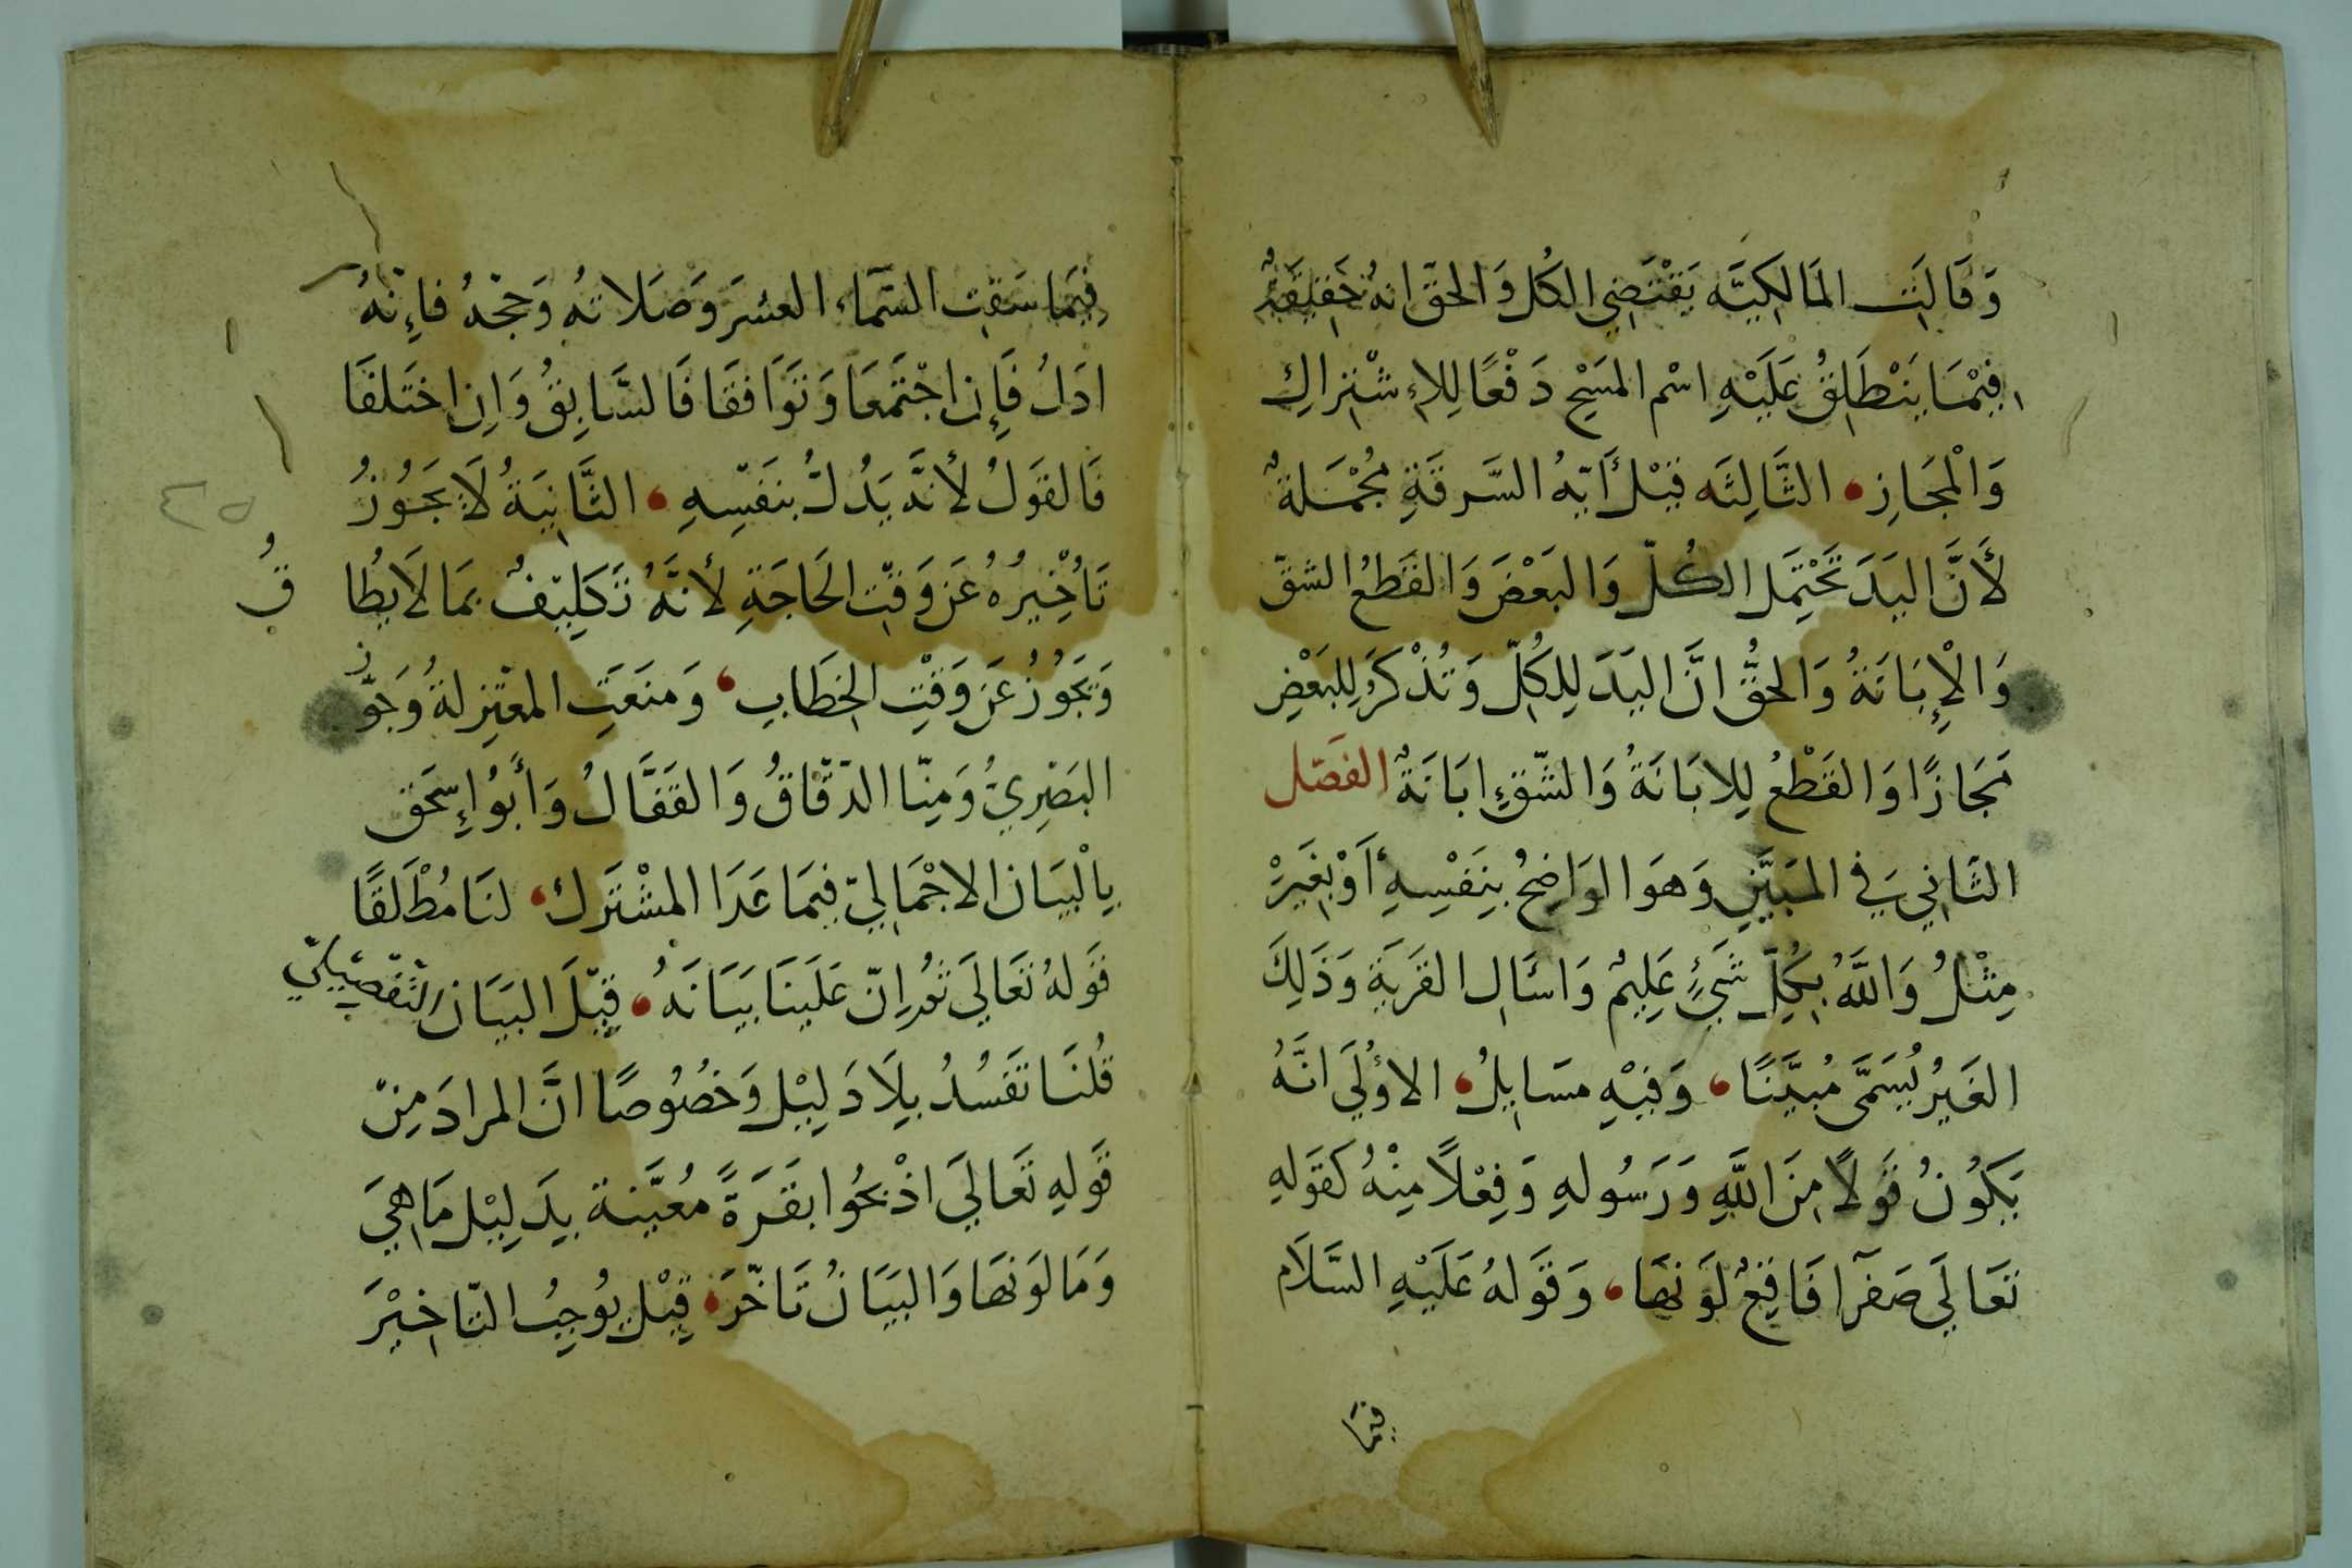 وَقَالَتِ المَالِكِيَّه يَقْتَضِي الكُل وَالحَقّ انهُ حَقِيقَةٌ
فِيْمَا يَنْطَلِقُ عَلَيْهِ اسْم المَسْحِ دَفْعًا لِلاِشْتِراكِ
وَالْمَجَازِ الثَّالِثَه قِيْلَ أيَةُ السَّرِقَةِ مُجْمَلَةٌ
لأَنَّ اليَدَ تَحْتَمِل الكُلّ وَالبَعْضَ وَالقَطعُ الشقّ
وَالْإِبَانَةُ وَالحَقُّ انَّ اليَدَ لِلكُلّ وَتُذْكَرُ لِلبَعْضِ
مَجَازًا وَالقَطْعُ لِلابَانَةُ وَالشّقِ ابَانَةٌ الفَصَل
الثَانِي فِي المُبَيَّنِ وَهوَ الوَاضِحُ بِنَفْسِهِ أَوْ بِغَيْرْ
مِثْلُ وَاللَّهُ بِكُلّ شَيْءٍ عَلِيمٌ وَاسْئَالِ القَريَةِ وَذَلِكَ
الغَيرُ يُسَمَّى مُبَيّنًا وَفِيْهِ مسَايِلُ الاوُلَي انَّهُ
يَكُونُ قَولًا مِنَ اللَّهِ وَرَسُولهِ وَفِعْلًا مِنْهُ كَقَولِهِ
تعَالَي صَفرَآ فَاقِعٌ لَونهَا وَقَولهُ عَلَيْهِ السَّلَام
فيما
فِيمَا سَقَتِ السَّمَاء العشرَ وَصَلاتهُ وَحَجّهُ فاِنّهُ
ادَلُ فَإِن اجْتَمعَا وَتَوَافقَا فَالسَّابِقُ وَاِن اختَلفَا
فَالقَولُ لأنَّه يَدُلُّ بنَفْسِهِ الثَّانِيَةُ لَا يَجَوُزُ
تَأخِيرُهُ عَن وَقتِ الحَاجَةِ لأنَّهُ تَكَلِيفٌ بمَا لَا يطَا
قُ
وَيَجُوزُ عَن وَقْتِ الخِطَابِ وَمنَعَتِ المعْتَزِلةُ وَجَوّز
البَصْرِيُّ وَمِنّا الدّقّاقُ وَالقَفَّالُ وَأبُو إِسْحَق
بِالْبيَان الاجْمَالِيّ فِيمَا عَدَا المشْتَرك لنَا مُطْلَقًا
قَولهُ تعَالَي ثمَّ اِنّ عَلَينَا بَيَانَهُ قِيْلَ البيَان التّفْصِيلِيّ
قُلنَا تَقَيُّدُ بِلَا دَلِيْل وَخُصُوصًا انَّ المرادَ مِنْ
قَولِهِ تَعَالَي اذْبحُوا بقَرَةً مُعَيَّنة بِدَلِيْل مَا هِيَ
وَمَا لَونهَا وَالبيَانُ تَأخّرَ قِيْل يُوجِبُ التّاخِيْرَ
٣٥